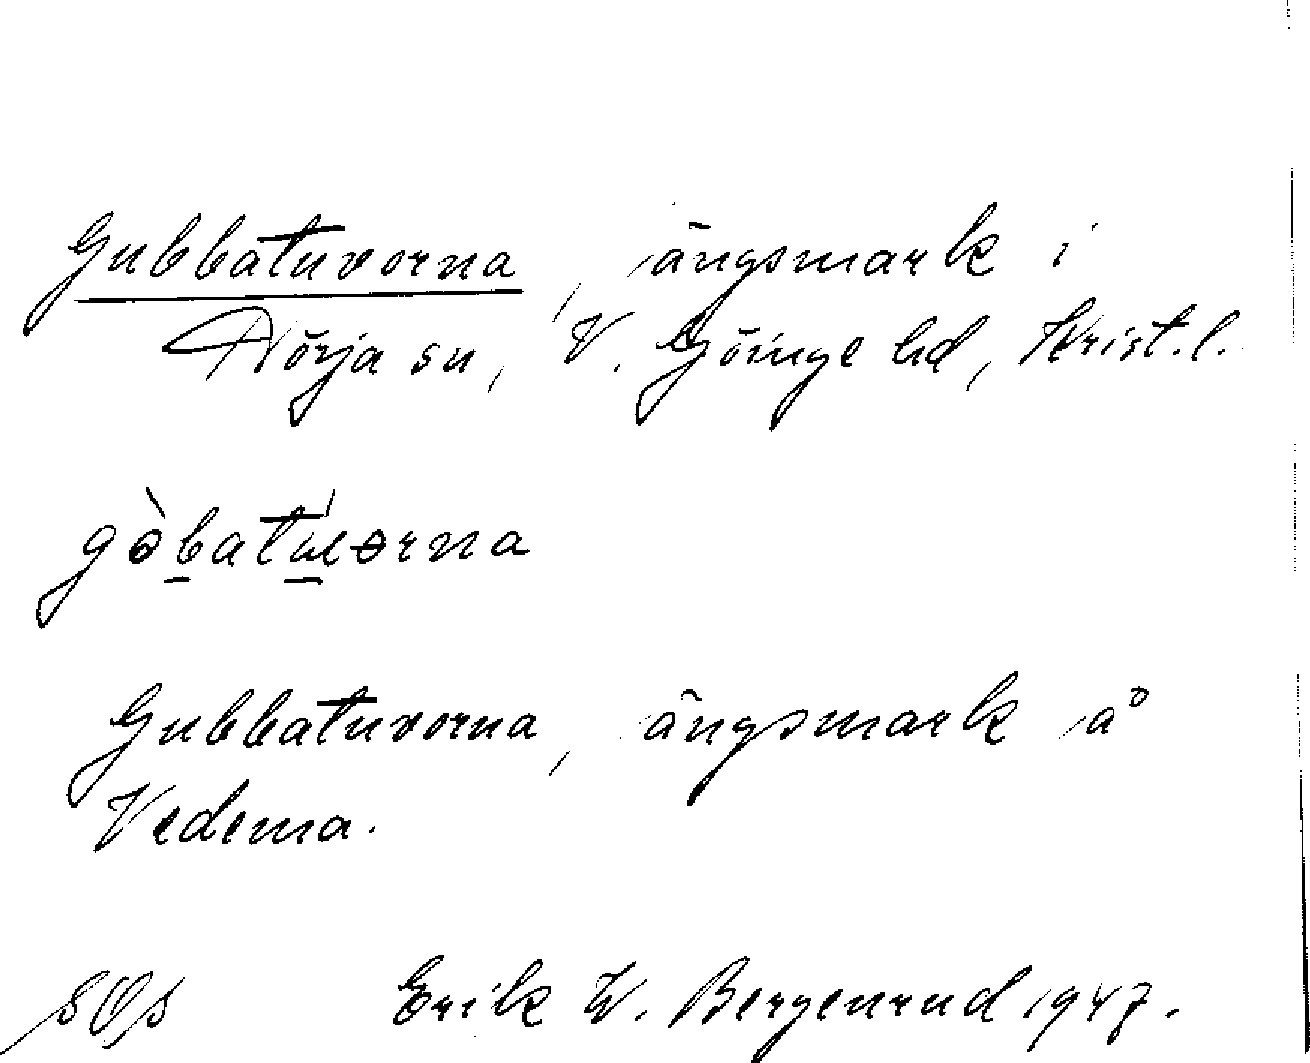 Gubbatuvorna, ängsmark i
Nörja sn, V. Göinge hd, Krist. l.
Gubbatuvorna, ängsmark å
Vedema.
Erik W. Bergenrud 1947.